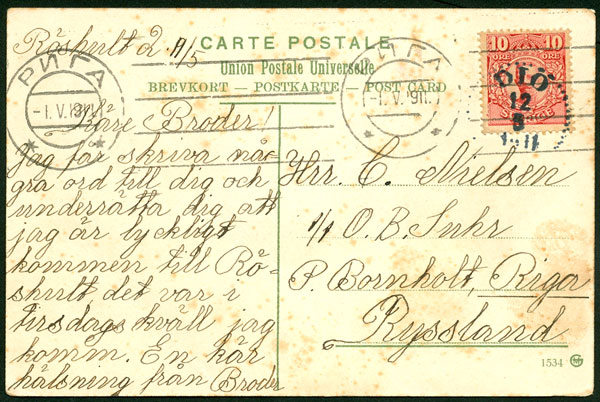 Råshult 2 11/5
CARTE POSTALE
Union Postale Universelle
BREVKORT — POSTKARTE — POST CARD
РИГА
-1.V.911.
РИГА
-1.V.911.
10 10
ÖRE ÖRE
DIÖ
12
5
1911
Käre Broder!
Jag får skriva nå-
gra ord till dig och
underrätta dig att
jag är lyckligt
kommen till Rö-
shult det var i
tirsdags kväll jag
komm. En kär
hälsning från Broder
Hrr. C. Nielsen
O. B. Suhr
P. Bornholt, Riga
Ryssland
1534